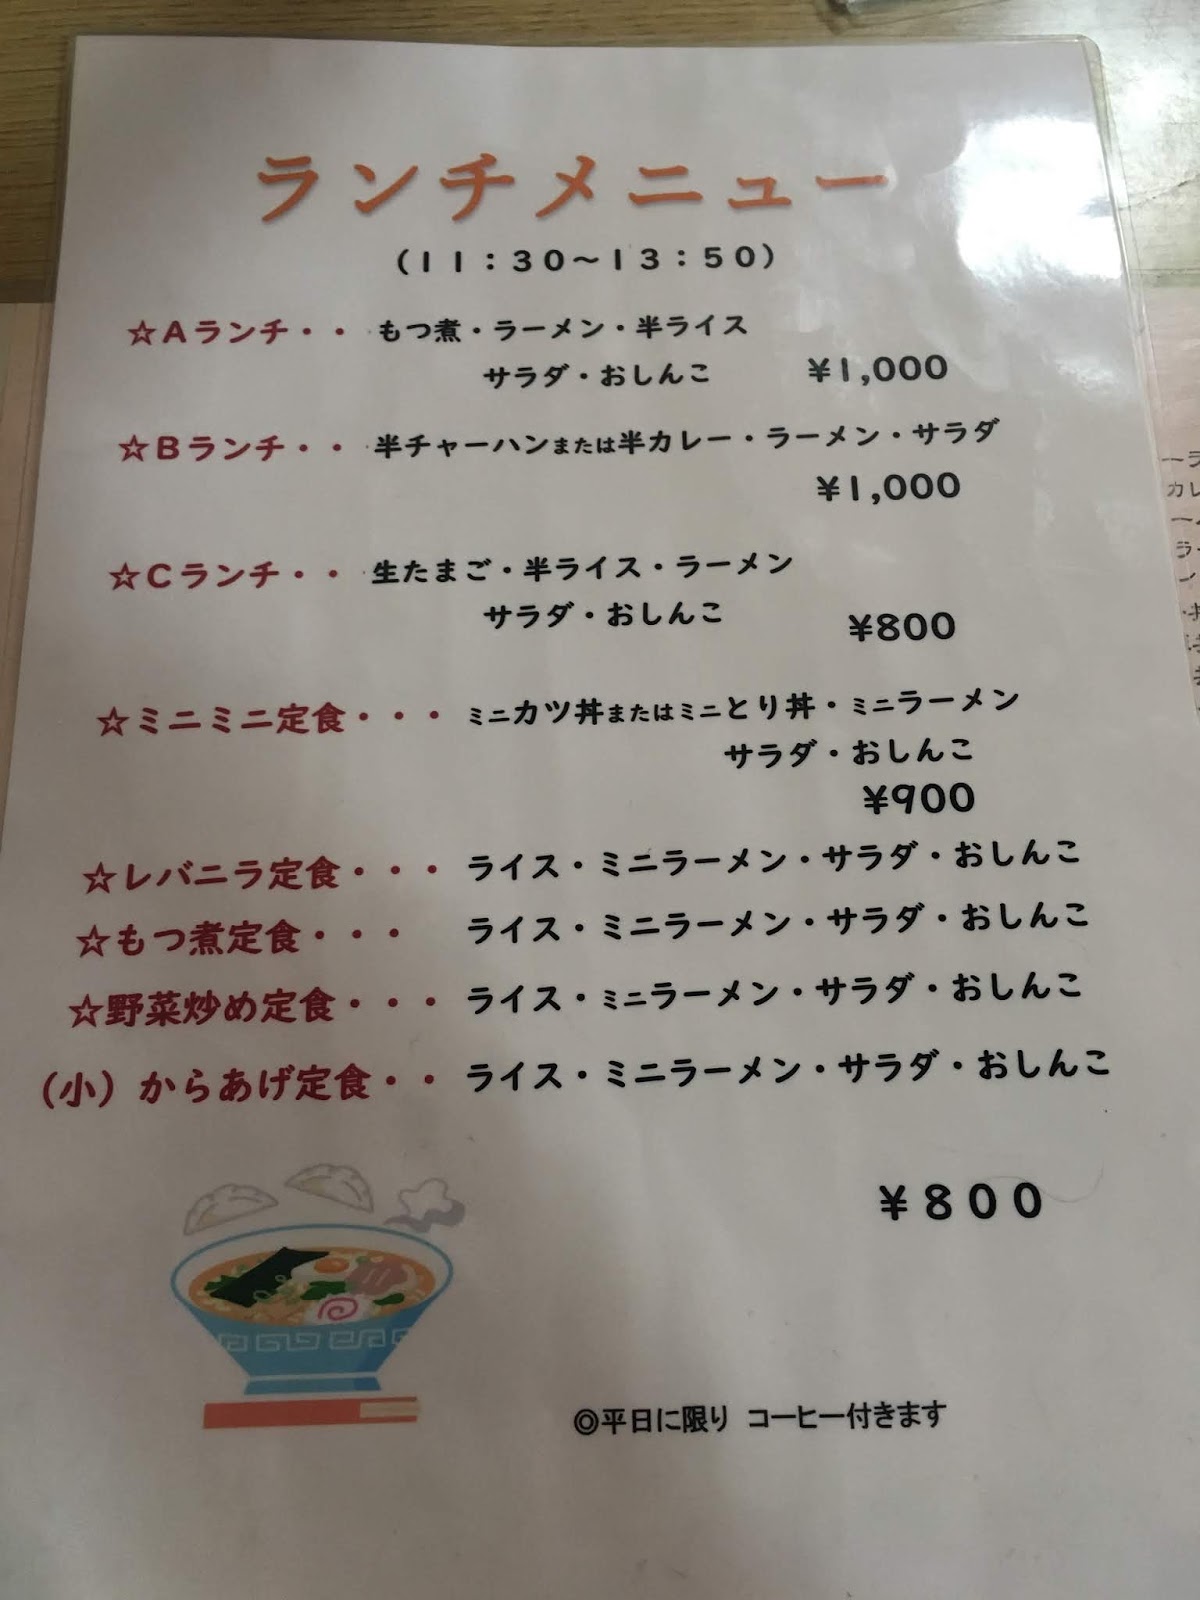 ランチメニュー
(11:30～13:50)
☆Aランチ・・ もつ煮・ラーメン・半ライス
サラダ・おしんこ ¥1,000
☆Bランチ・・ 半チャーハンまたは半カレー・ラーメン・サラダ
¥1,000
☆Cランチ・・ 生たまご・半ライス・ラーメン
サラダ・おしんこ ¥800
☆ミニミニ定食・・・ ミニカツ丼またはミニとり丼・ミニラーメン
サラダ・おしんこ
¥900
☆レバニラ定食・・・ ライス・ミニラーメン・サラダ・おしんこ
☆もつ煮定食・・・ ライス・ミニラーメン・サラダ・おしんこ
☆野菜炒め定食・・・ ライス・ミニラーメン・サラダ・おしんこ
(小) からあげ定食・・ ライス・ミニラーメン・サラダ・おしんこ
¥800
◎平日に限り コーヒー付きます